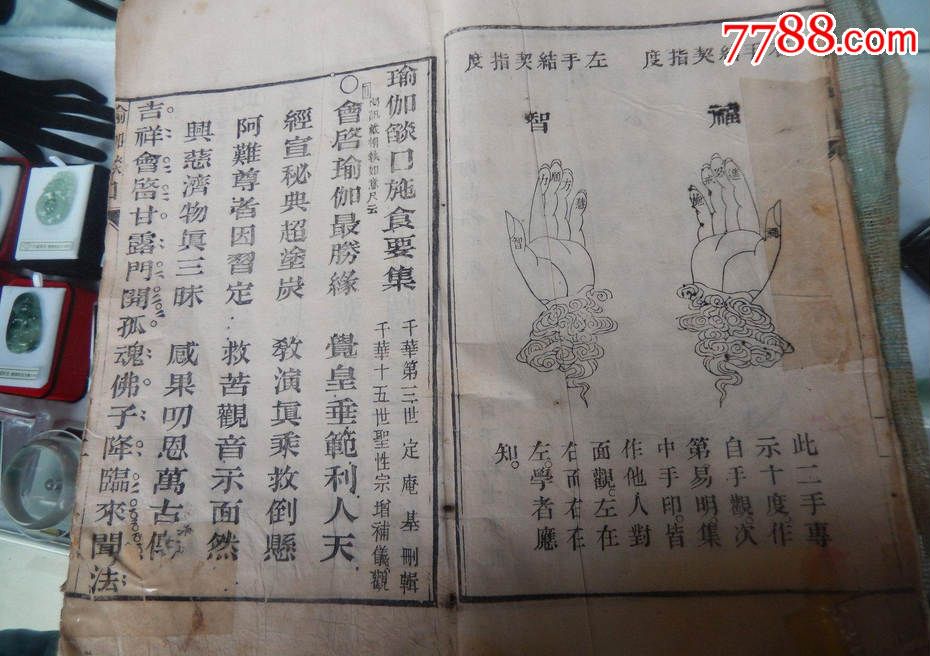 7788.com
右手結契指度
左手結契指度
福
智
進
慧
方
願
力
智
此二手專
示十度作
自手觀次
第易明集
中手印皆
作他人對
面觀左在
右而右在
左學者應
知。
瑜伽燄口施食要集
千華第三世定庵基刪輯
千華十五世聖性宗增補儀觀
○會啓瑜伽最勝緣 覺皇垂範利人天
經宣秘典超塗炭 教演眞乘救倒懸
阿難尊者因習定 救苦觀音示面然
興慈濟物眞三昧 感果叨恩萬古
吉祥會啓甘露門開孤魂佛子降臨來聞法
瑜伽燄口